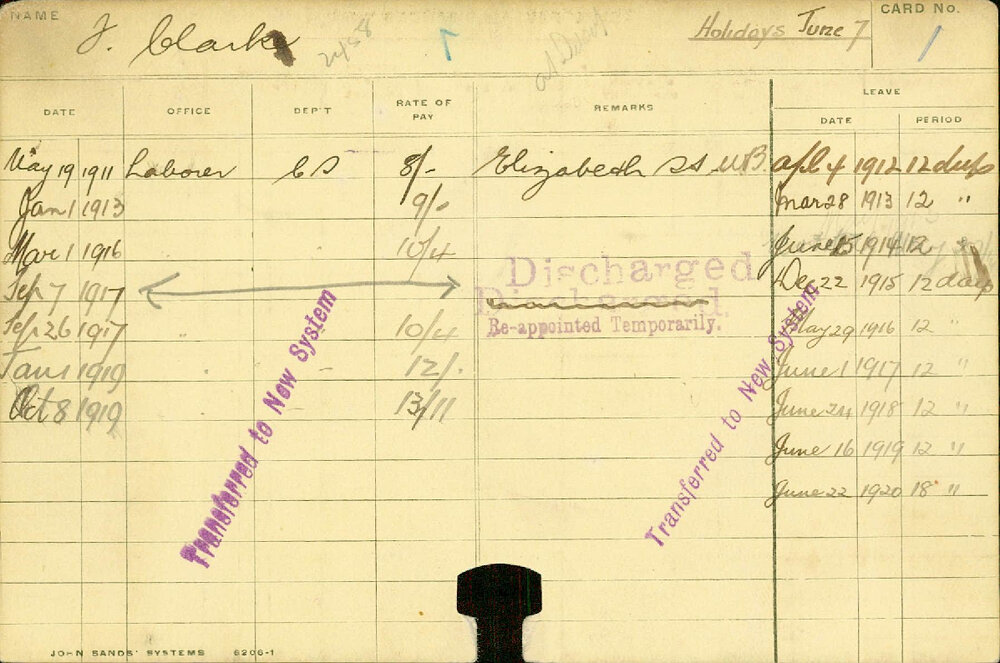 NAME
CARD No.
Clarke
Holidays June 7
1
DATE OFFICE DEP'T RATE OF PAY REMARKS LEAVE
DATE PERIOD
May 19 1911 Laborer CS 8/- Elizabeth St WB. Apl 4 1912 12 days
Jan 1 1913 9/- Mar 28 1913 12 "
Mar 1 1916 10/4 June 15 1914 12 "
Sep 7 1917 Discharged Dec 22 1915 12 days
Re-appointed Temporarily.
Sep 26 1917 " 10/4 May 29 1916 12 "
Jan 1 1919 12/- June 1 1917 12 "
Oct 8 1919 13/11 June 24 1918 12 "
June 16 1919 12 "
June 22 1920 18 "
Transferred to New System
Transferred to New System
JOHN SANDS' SYSTEMS 6206-1